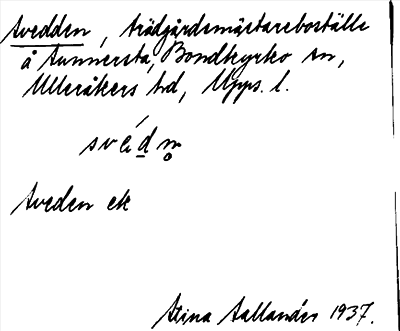 Svedden, trädgårdsmästareboställe
å Sunnersta, Bondkyrko sn,
Ulleråkers hd, Upps. l.
své́dn̥
Sveden ek
Stina Sallander 1937.